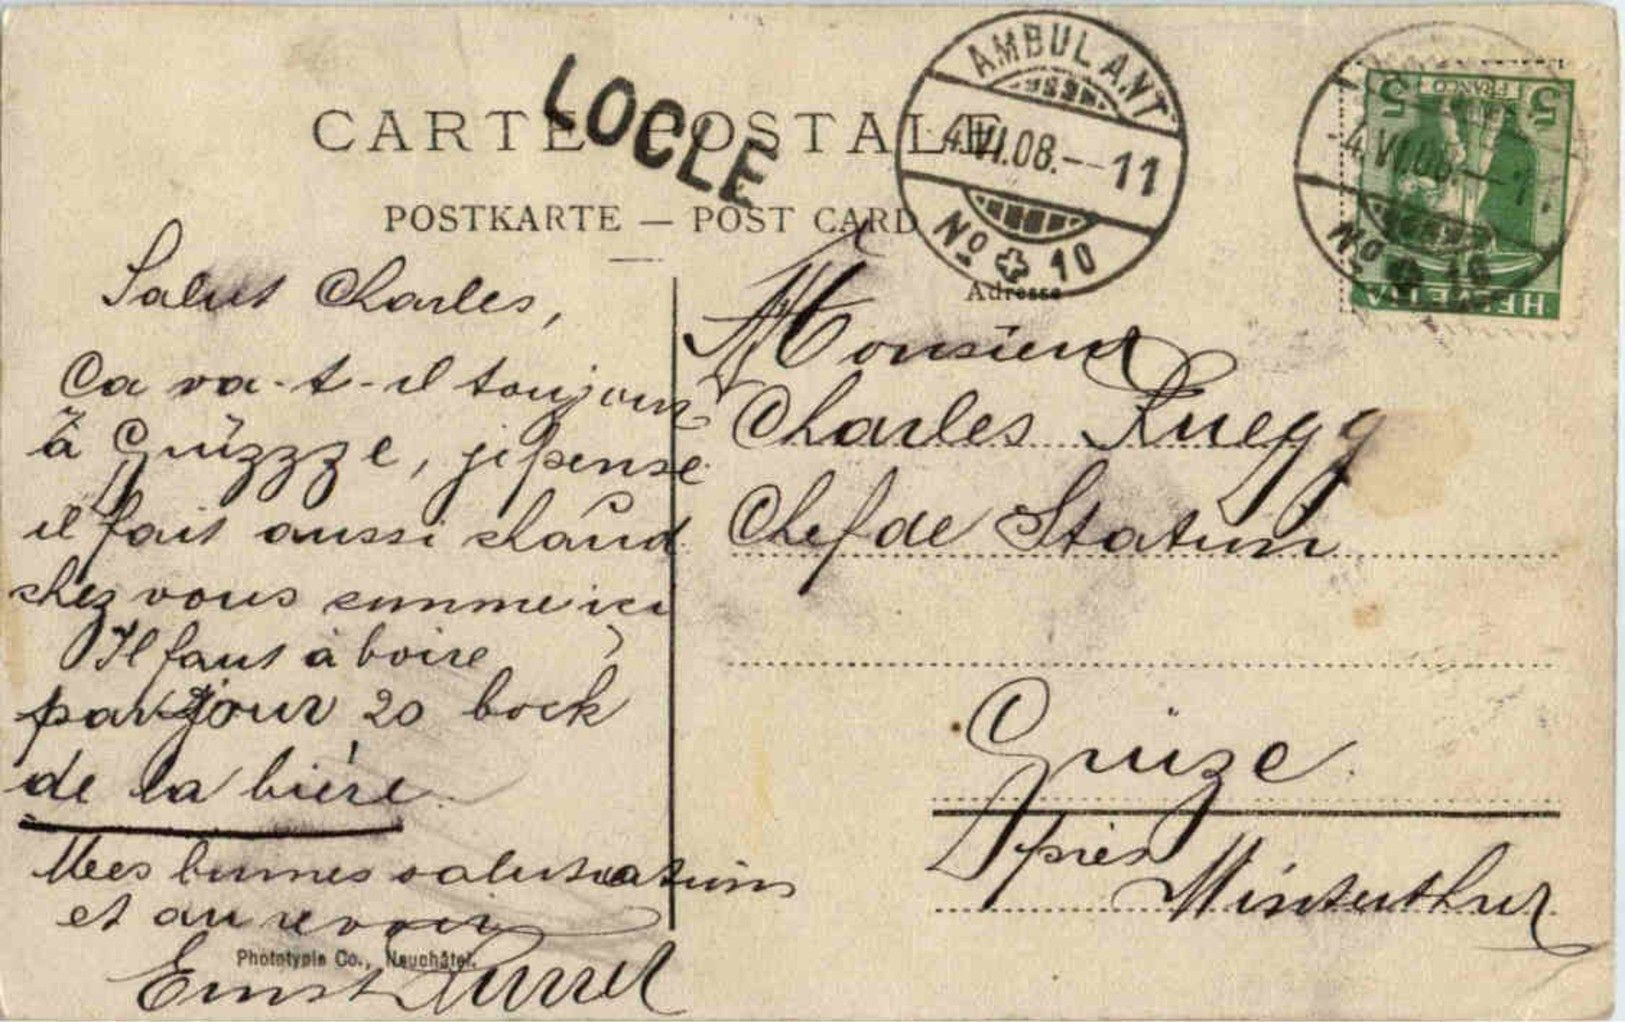 CARTE POSTALE
POSTKARTE — POST CARD
LOCLE
AMBULANT
4.VI.08.--11
No 10
4.VI.08.
No 10
5 FRANCO 5
HELVETIA
Adresse
Salut Charles,
Ca va-t-il toujours
à Grüzzze, je pense
il fait aussi chaud
chez vous comme ici
Il faut à boire
par jour 20 bock
de la bière.
Mees bonnes salutations
et au revoir
Ernst
Phototypie Co., Neuchâtel.
Monsieur
Charles Ruegg
Chef de Station
Grüze.
près Winterthur